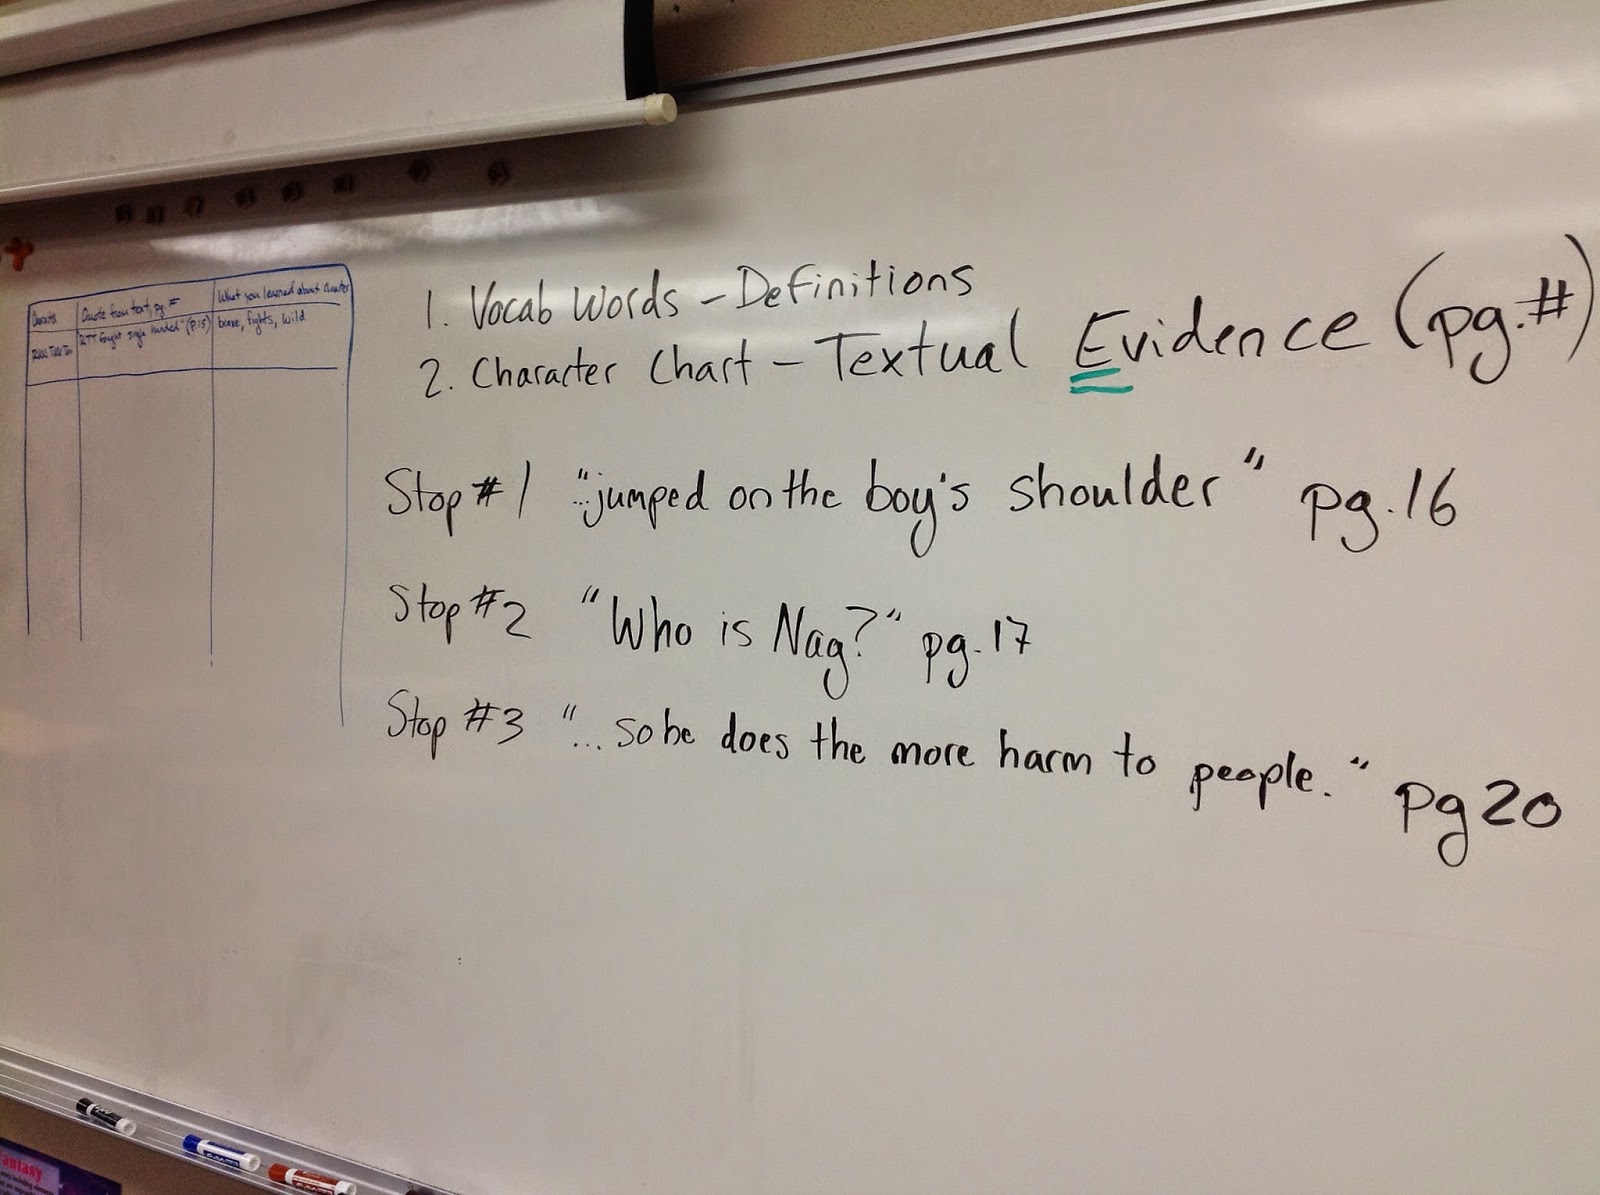 Quote from text, pg. #
What you learned about character
Rikki Tikki Tavi
RTT fought single handed" (p.15)
brave, fights, wild
1. Vocab Words - Definitions
2. Character Chart - Textual Evidence (pg.#)
Stop #1 "...jumped on the boy's shoulder" pg.16
Stop #2 "Who is Nag?" pg.17
Stop #3 "...so he does the more harm to people." pg 20
antasy